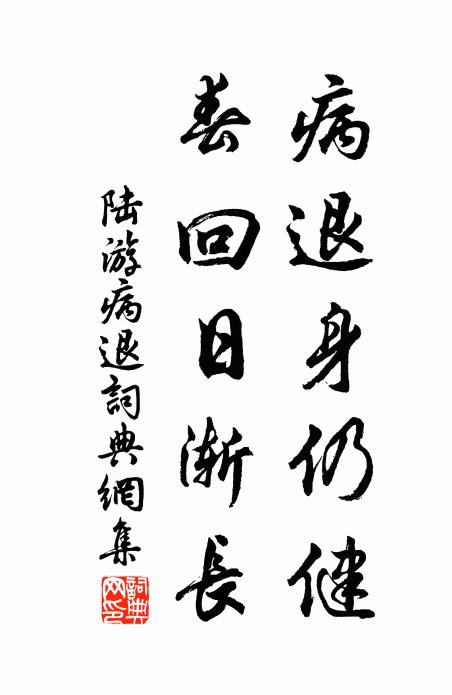 病退身仍健
春回日漸長
陸游病退詞典網集